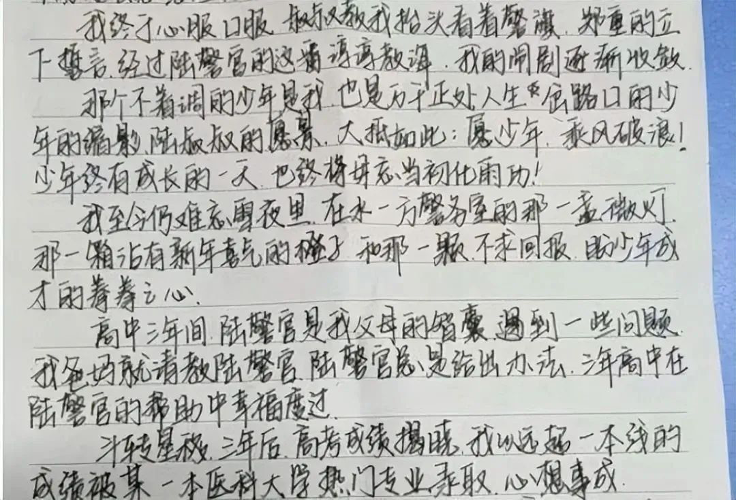 我终于心服口服 叔叔教我抬头看着警旗 郑重的立
下誓言 经过陆警官的这番谆谆教诲 我的闹剧逐渐收敛
那个不着调的少年是我 也是万千正处人生岔路口的少
年的缩影 陆叔叔的愿景 大抵如此：愿少年 乘风破浪！
少年终有成长的一天 也终将毋忘当初化雨功！
我至今仍难忘雪夜里 在水一方警务室的那一盏微灯
那一箱沾有新年喜气的橙子 和那一颗不求回报 助少年成
才的拳拳之心
高中三年间 陆警官是我父母的智囊 遇到一些问题
我爸妈就请教陆警官 陆警官总是给出办法 三年高中在
陆警官的帮助中幸福度过
斗转星移 三年后 高考成绩揭晓 我以远超一本线的
成绩被某一本医科大学热门专业录取 心想事成